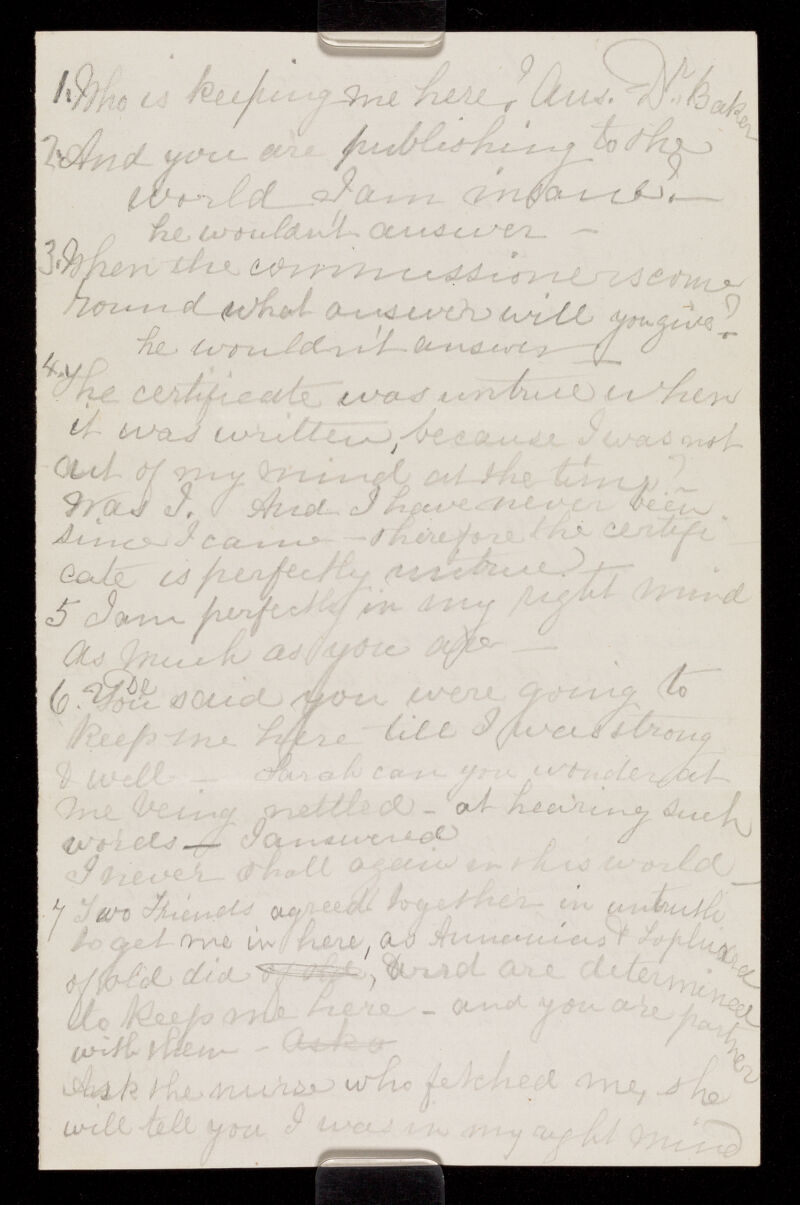 1. Who is keeping me here? Ans. Dr Baker
2. And you are publishing to the
world I am insane? —
he wouldn't answer —
3. When the commissioners come
round what answer will you give?
he wouldn't answer —
4. The certificate was untrue when
it was written, because I was not
out of my mind at the time?
was I. And I have never been
since I came — therefore the certifi
cate is perfectly untrue?
5 I am perfectly in my right mind
as much as you are —
6. You said you were going to
keep me here till I was strong
& well — Sarah can you wonder at
me being nettled — at hearing such
words — I answered
I never shall again in this world —
7 Two Friends agreed together in untruth
to get me in here, as Annanias & Saphira
of old did of old, and are determined
to keep me here — and you are partner
with them — Ask a
Ask the nurse who fetched me, she
will tell you I was in my right mind